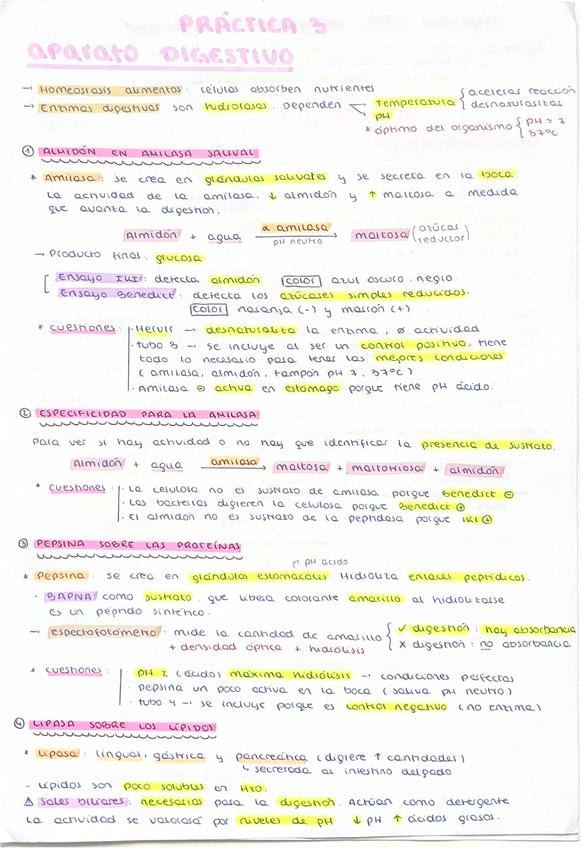 PRÁCTICA 3
APARATO DIGESTIVO
→ Homeostasis alimentos: células absorben nutrientes.
→ Enzimas digestivas son hidrolasas. Dependen < Temperatura { acelerar reacción
desnaturalizar
pH
* óptimo del organismo { pH = 7
37ºC
① ALMIDÓN EN AMILASA SALIVAL
* Amilasa: se crea en glándulas salivales y se secreta en la boca
La actividad de la amilasa, ↓ almidón y ↑ maltosa a medida
que avanza la digestión.
Almidón + agua α amilasa → maltosa (azúcar
pH neutro reductor)
→ Producto final: glucosa
[ Ensayo IKI: detecta almidón COLOR azul oscuro, negro.
Ensayo Benedict: detecta los azúcares simples reducidos.
COLOR naranja (-) y marrón (+)
* Cuestiones: · Hervir → desnaturaliza la enzima, ø actividad
· tubo 3 → se incluye al ser un control positivo, tiene
todo lo necesario para tener las mejores condiciones
(amilasa, almidón, tampón pH 7, 37ºC)
· Amilasa ⊖ activa en estómago porque tiene pH ácido.
② ESPECIFICIDAD PARA LA AMILASA
Para ver si hay actividad o no hay que identificar la presencia de sustrato.
Almidón + agua amilasa → maltosa + maltotriosa + almidón
* cuestiones: · La celulosa no es sustrato de amilasa porque Benedict ⊖
· Las bacterias digieren la celulosa porque Benedict ⊕
· El almidón no es sustrato de la peptidasa porque IKI ⊕
③ PEPSINA SOBRE LAS PROTEÍNAS
pH ácido
* Pepsina: se crea en glándulas estomacales. Hidroliza enlaces peptídicos.
· BAPNA como sustrato, que libera colorante amarillo al hidrolizarse
es un péptido sintético.
→ espectofotómetro: mide la cantidad de amarillo { ✓ digestión: hay absorbancia
+ densidad óptica + hidrólisis x digestión: no absorbancia
* cuestiones: · pH 2 (ácido) máxima hidrólisis → condiciones perfectas
· pepsina un poco activa en la boca (saliva pH neutro)
· tubo 4 → se incluye porque es control negativo (no enzima)
④ LIPASA SOBRE LOS LÍPIDOS
* Lipasa: lingual, gástrica y pancreática (digiere ↑ cantidades)
↳ secretada al intestino delgado
- Lípidos son poco solubles en H2O.
⚠ Sales biliares: necesarias para la digestión. Actúan como detergente
La actividad se valorará por niveles de pH ↓ pH ↑ ácidos grasos.